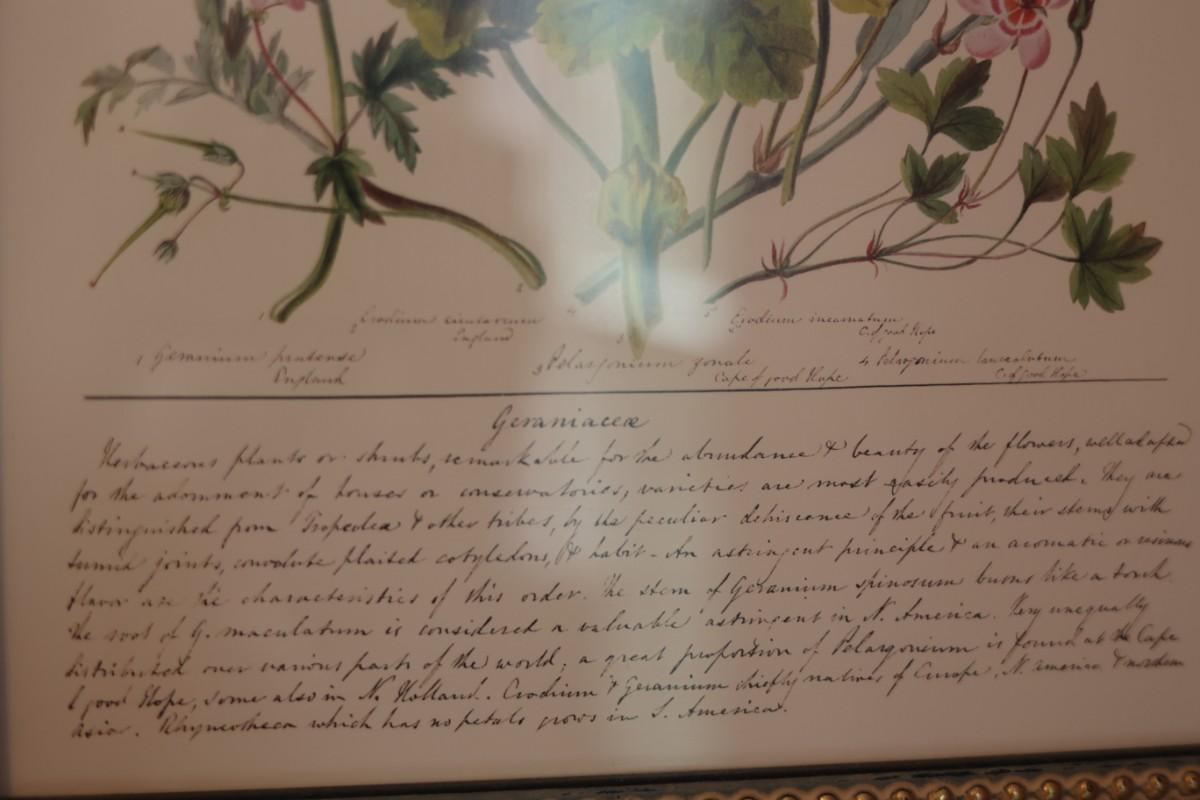 2 Erodium
England
5 Erodium incarnatum
C. of good Hope
1 Geranium pratense
England
3 Pelargonium zonale
Cape of good Hope
4 Pelargonium lanceolatum
C. of good Hope
Geraniaceæ
Herbaceous plants or shrubs, remarkable for the abundance & beauty of the flowers, well adapted
for the adornment of houses or conservatories; varieties are most easily produced. They are
distinguished from Tropeolea & other tribes, by the peculiar dehiscence of the fruit, their stems with
tumid joints, convolute plaited cotyledons, & habit - An astringent principle & an aromatic or resinous
flavor are the characteristics of this order. The stem of Geranium spinosum burns like a torch
the root of G. maculatum is considered a valuable astringent in N. America. Very unequally
distributed over various parts of the world; a great proportion of Pelargonium is found at the Cape
of good Hope, some also in N. Holland. Erodium & Geranium chiefly natives of Europe, N. America & northern
Asia. Rhyncotheca which has no petals grows in S. America.